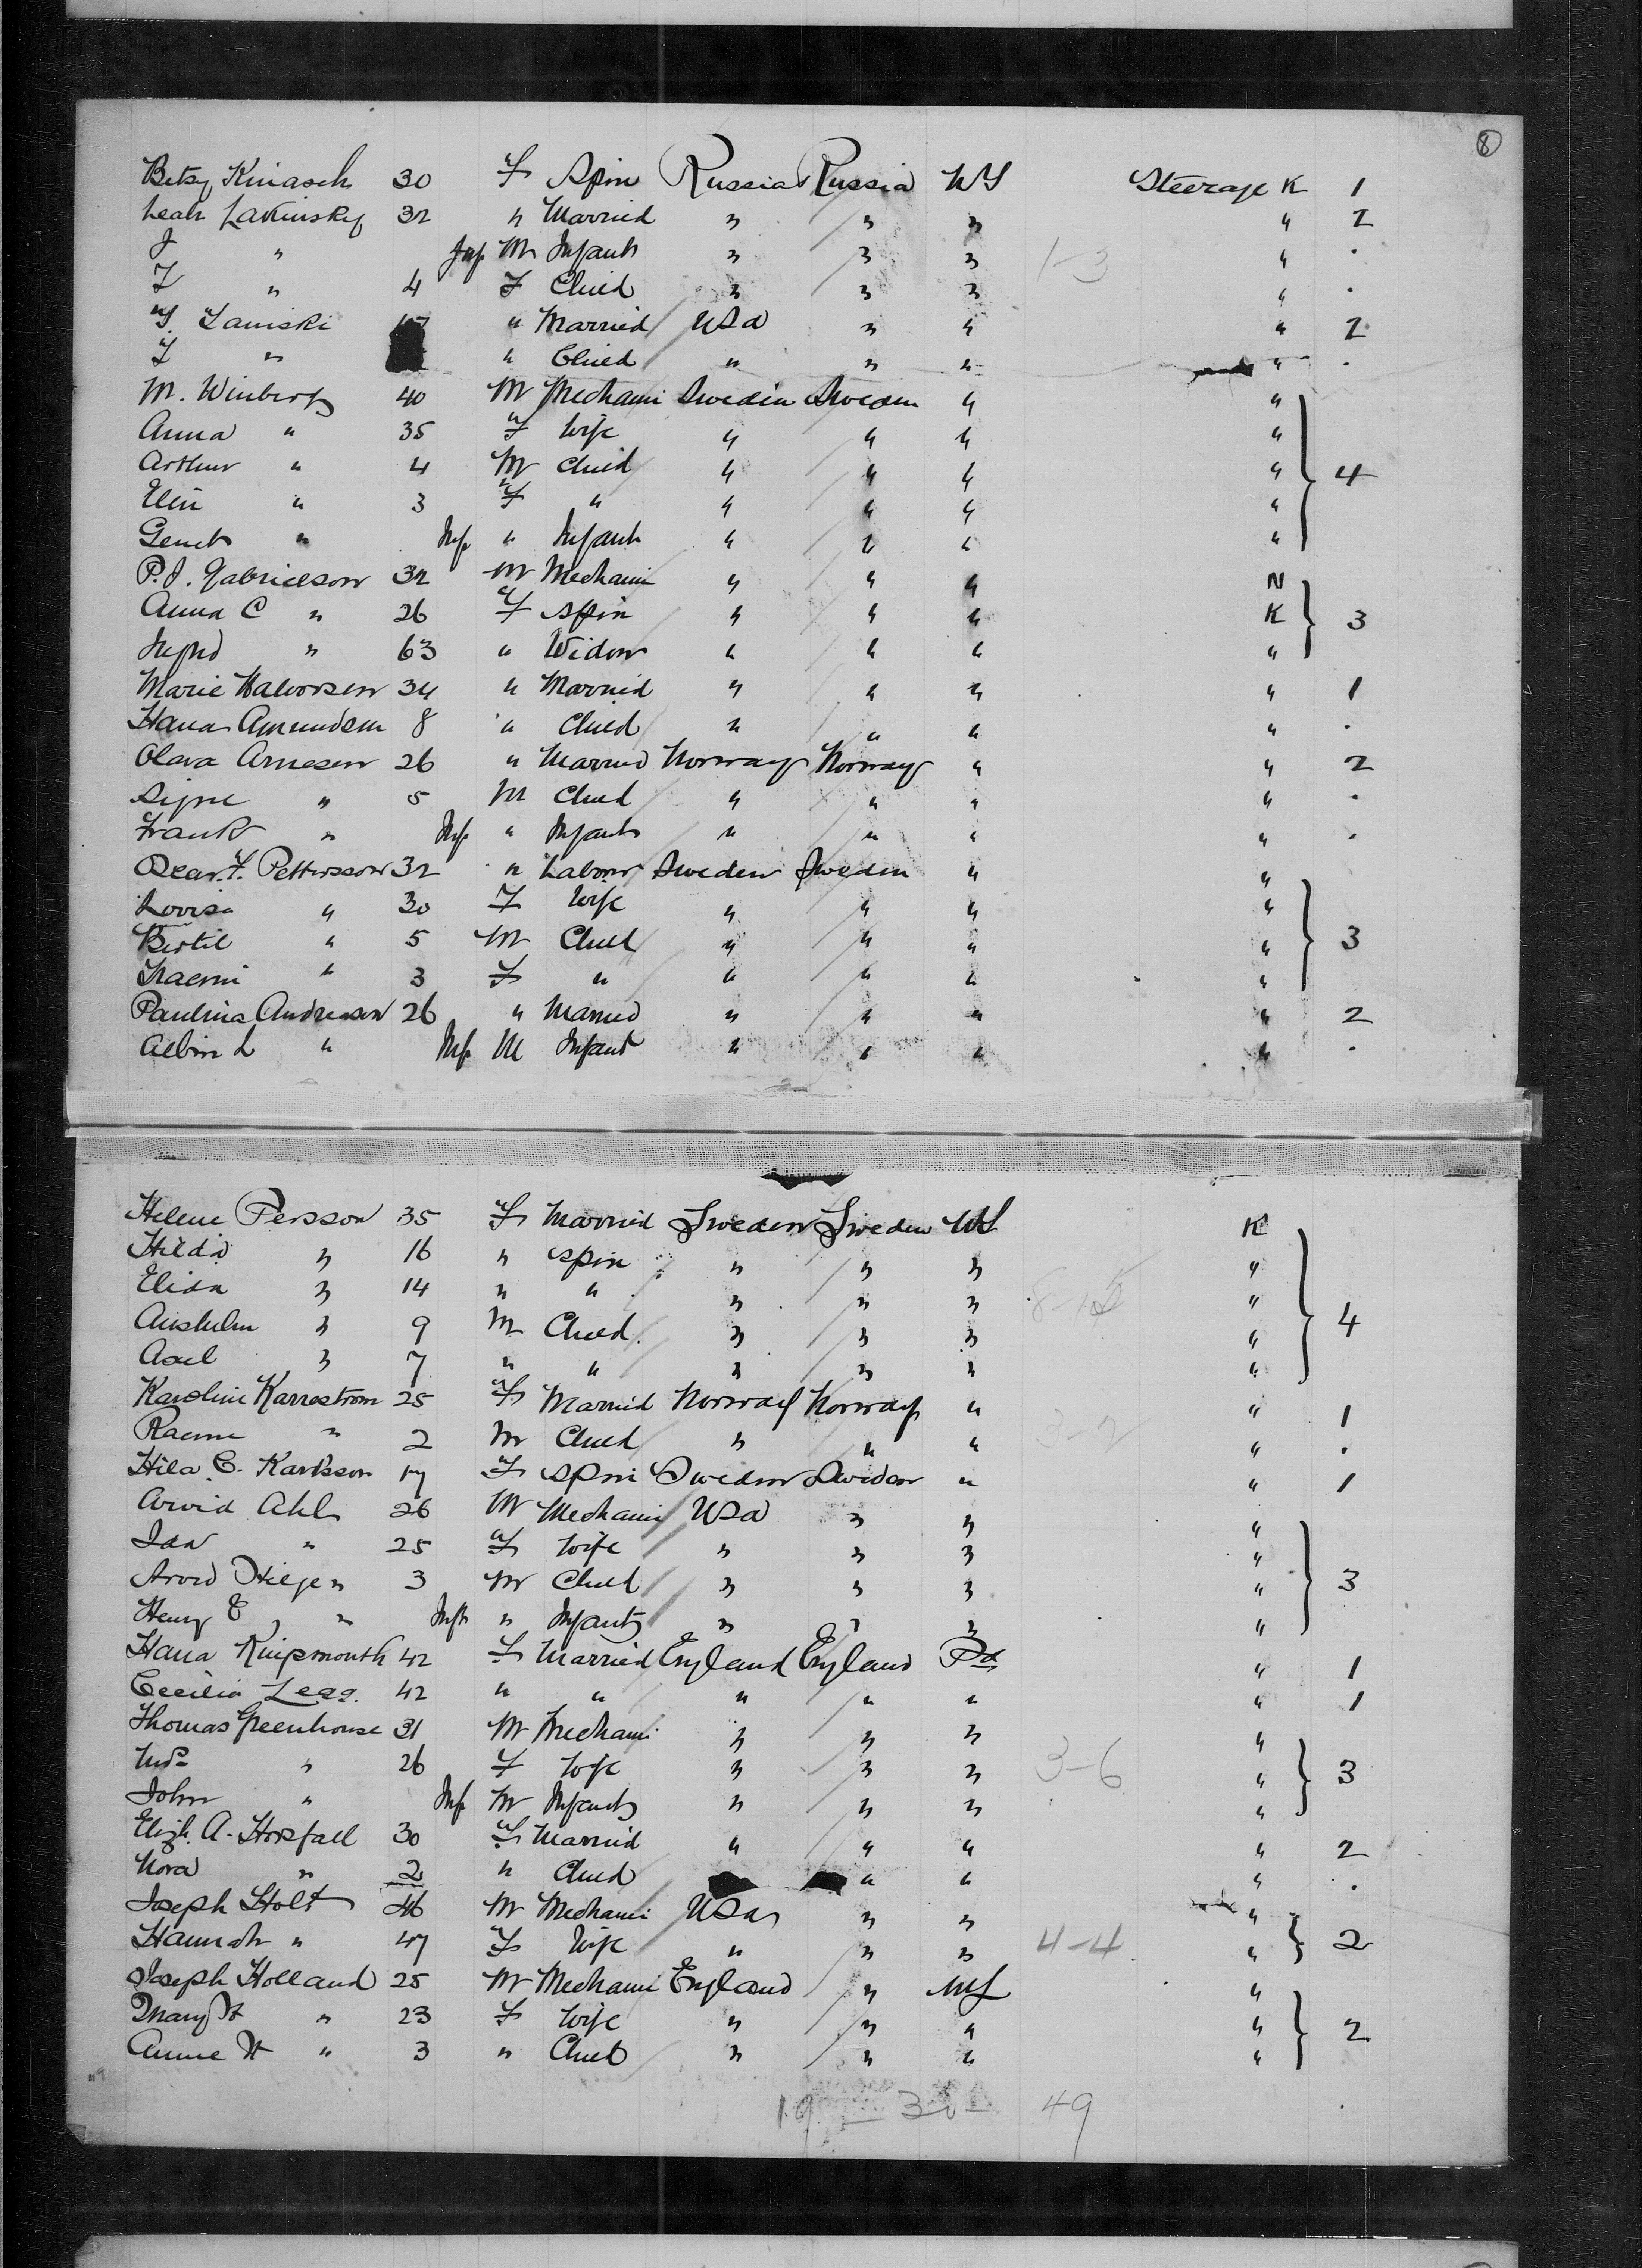 8
Betsy Kinasch 30 F Spin Russia Russia NY Steerage K 1
Leah Lakinsky 32 " Married " " " " 2
J " Inf M Infant " " " 1-3 " .
F " 4 F Child " " " " .
Y. Laniski " Married USA " " " 2
F " " Child " " " " .
M. Winberg 40 M Mechani Sweden Sweden " "
Anna " 35 F Wife " " " "
Arthur " 4 M Child " " " " 4
Elin " 3 F " " " " "
" Inf " Infant " " " "
P.J. Gabrielson 32 M Mechani " " " N
Anna C " 26 F Spin " " " K 3
" 63 " Widow " " " "
Marie Halvorsen 34 " Married " " " " 1
Hana Amundsen 8 " Child " " " " .
Olava Arnesen 26 " Married Norway Norway " " 2
Signe " 5 M Child " " " " .
Frank " Inf " Infant " " " " .
Oscar F. Pettersson 32 " Labour Sweden Sweden " "
Lovisa " 30 F Wife " " " "
Bertil " 5 M Child " " " " 3
" 3 F " " " " "
Paulina Andreasen 26 " Married " " " " 2
Albin L " Inf M Infant " " " " .
Helene Persson 35 F Married Sweden Sweden NY K
Hilda " 16 " Spin " " " "
Elida " 14 " " " " " "
" 9 M Child " " " " 4
Axel " 7 " " " " " "
Karoline Karrestrom 25 F Married Norway Norway " " 1
" 2 M Child " " " 3-2 " .
Hila C. Karlsson 17 F Spin Sweden Sweden " " 1
Arvid Ahl 26 M Mechani USA " " "
Ida " 25 F Wife " " " "
Arvid " 3 M Child " " " " 3
Henry E " Inft " Infant " " " "
Hana 42 F Married England England Pa " 1
Cecilia Legg. 42 " " " " " " 1
Thomas Greenhouse 31 M Mechani " " " "
Mrs " 26 F Wife " " " 3-6 " 3
John " Inf M Infant " " " "
Eliz. A. Horsfall 30 F Married " " " " 2
Nora " 2 " Child " " " .
Joseph Holt 46 M Mechani USA " " "
Hannah " 47 F Wife " " " 4-4 " 2
Joseph Holland 25 M Mechani England " "
Mary H " 23 F Wife " " " " 2
Annie H " 3 " Child " " " "
19 - 30 49